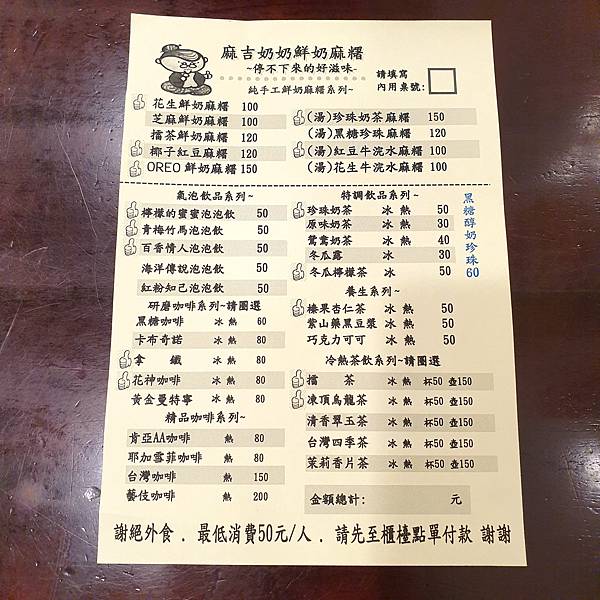 麻吉奶奶鮮奶麻糬
~停不下來的好滋味~
請填寫
內用桌號:
純手工鮮奶麻糬系列~
花生鮮奶麻糬 100
芝麻鮮奶麻糬 100
擂茶鮮奶麻糬 120
椰子紅豆麻糬 120
OREO鮮奶麻糬 150
(湯)珍珠奶茶麻糬 150
(湯)黑糖珍珠麻糬 120
(湯)紅豆牛浣水麻糬 100
(湯)花生牛浣水麻糬 100
氣泡飲品系列~
檸檬的蜜蜜泡泡飲 50
青梅竹馬泡泡飲 50
百香情人泡泡飲 50
海洋傳說泡泡飲 50
紅粉知己泡泡飲 50
研磨咖啡系列~請圈選
黑糖咖啡 冰 熱 60
卡布奇諾 冰 熱 80
拿 鐵 冰 熱 80
花神咖啡 冰 熱 80
黃金曼特寧 冰 熱 80
精品咖啡系列~
肯亞AA咖啡 熱 80
耶加雪菲咖啡 熱 80
台灣咖啡 熱 150
藝伎咖啡 熱 200
特調飲品系列~
珍珠奶茶 冰 熱 50
原味奶茶 冰 熱 30
鴛鴦奶茶 冰 熱 40
冬瓜露 冰 30
冬瓜檸檬茶 冰 50
黑糖醇奶珍珠60
養生系列~
榛果杏仁茶 冰 熱 50
紫山藥黑豆漿 冰 熱 50
巧克力可可 冰 熱 50
冷熱茶飲系列~請圈選
擂 茶 冰 熱 杯50 壺150
凍頂烏龍茶 冰 熱 杯50 壺150
清香翠玉茶 冰 熱 杯50 壺150
台灣四季茶 冰 熱 杯50 壺150
茉莉香片茶 冰 熱 杯50 壺150
金額總計: 元
謝絕外食．最低消費50元/人．請先至櫃檯點單付款 謝謝